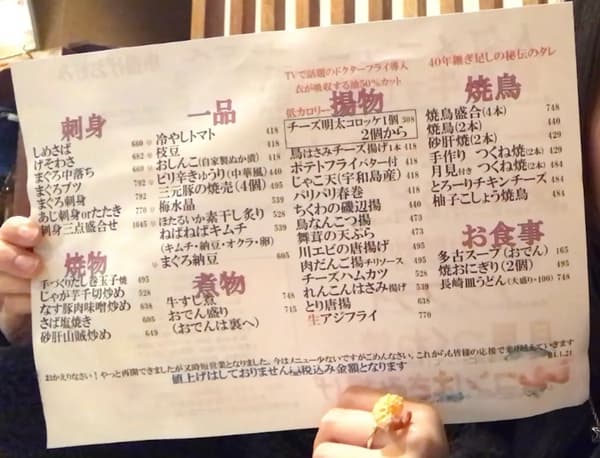 刺身
しめさば 660
げそわさ 682
まぐろ中落ち 792
まぐろブツ 792
まぐろ刺身
あじ刺身orたたき 770
刺身三点盛せ 1045
焼物
手づくりだし巻玉子焼 495
じゃが芋千切炒め 528
なす豚肉味噌炒め 638
さば塩焼き 605
砂肝山賊炒め 649
一品
冷やしトマト 418
枝豆 418
おしんこ(自家製ぬか漬) 418
ピリ辛きゅうり(中華風) 440
三元豚の焼売(4個) 495
梅水晶 539
ほたるいか素干し炙り 528
ねばねばキムチ 539
(キムチ・納豆・オクラ・卵)
まぐろ納豆 605
煮物
牛すじ煮 748
おでん盛り 715
(おでんは裏へ)
TVで話題のドクターフライ導入
衣が吸収する油50%カット
低カロリー
揚物
チーズ明太コロッケ1個 308
2個から
鳥はさみチーズ揚げ1本 418
ポテトフライバター付 418
じゃこ天(宇和島産) 418
パリパリ春巻 418
ちくわの磯辺揚 440
鳥なんこつ揚 473
舞茸の天ぷら 473
川エビの唐揚げ 495
肉だんご揚チリソース 495
チーズハムカツ 528
れんこんはさみ揚げ 539
とり唐揚 638
生アジフライ 770
40年継ぎ足しの秘伝のタレ
焼鳥
焼鳥盛合(4本) 748
焼鳥(2本) 440
砂肝焼(2本) 429
手作り つくね焼(2本) 429
月見付き つくね焼(2本) 484
とろーりチキンチーズ 484
柚子こしょう焼鳥 484
お食事
多古スープ(おでん) 165
焼おにぎり(2個) 495
長崎皿うどん(大盛り+100) 748
おかえりなさい!やっと再開できましたが又時短営業となりました。今はメニュー少ないですがごめんなさい。これからも皆様の応援で乗り越えていきます
値上げはしておりません。税込み金額となります